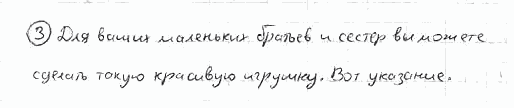 ③ Для ваших маленьких братьев и сестер вы можете
сделать такую красивую игрушку. Вот указание.